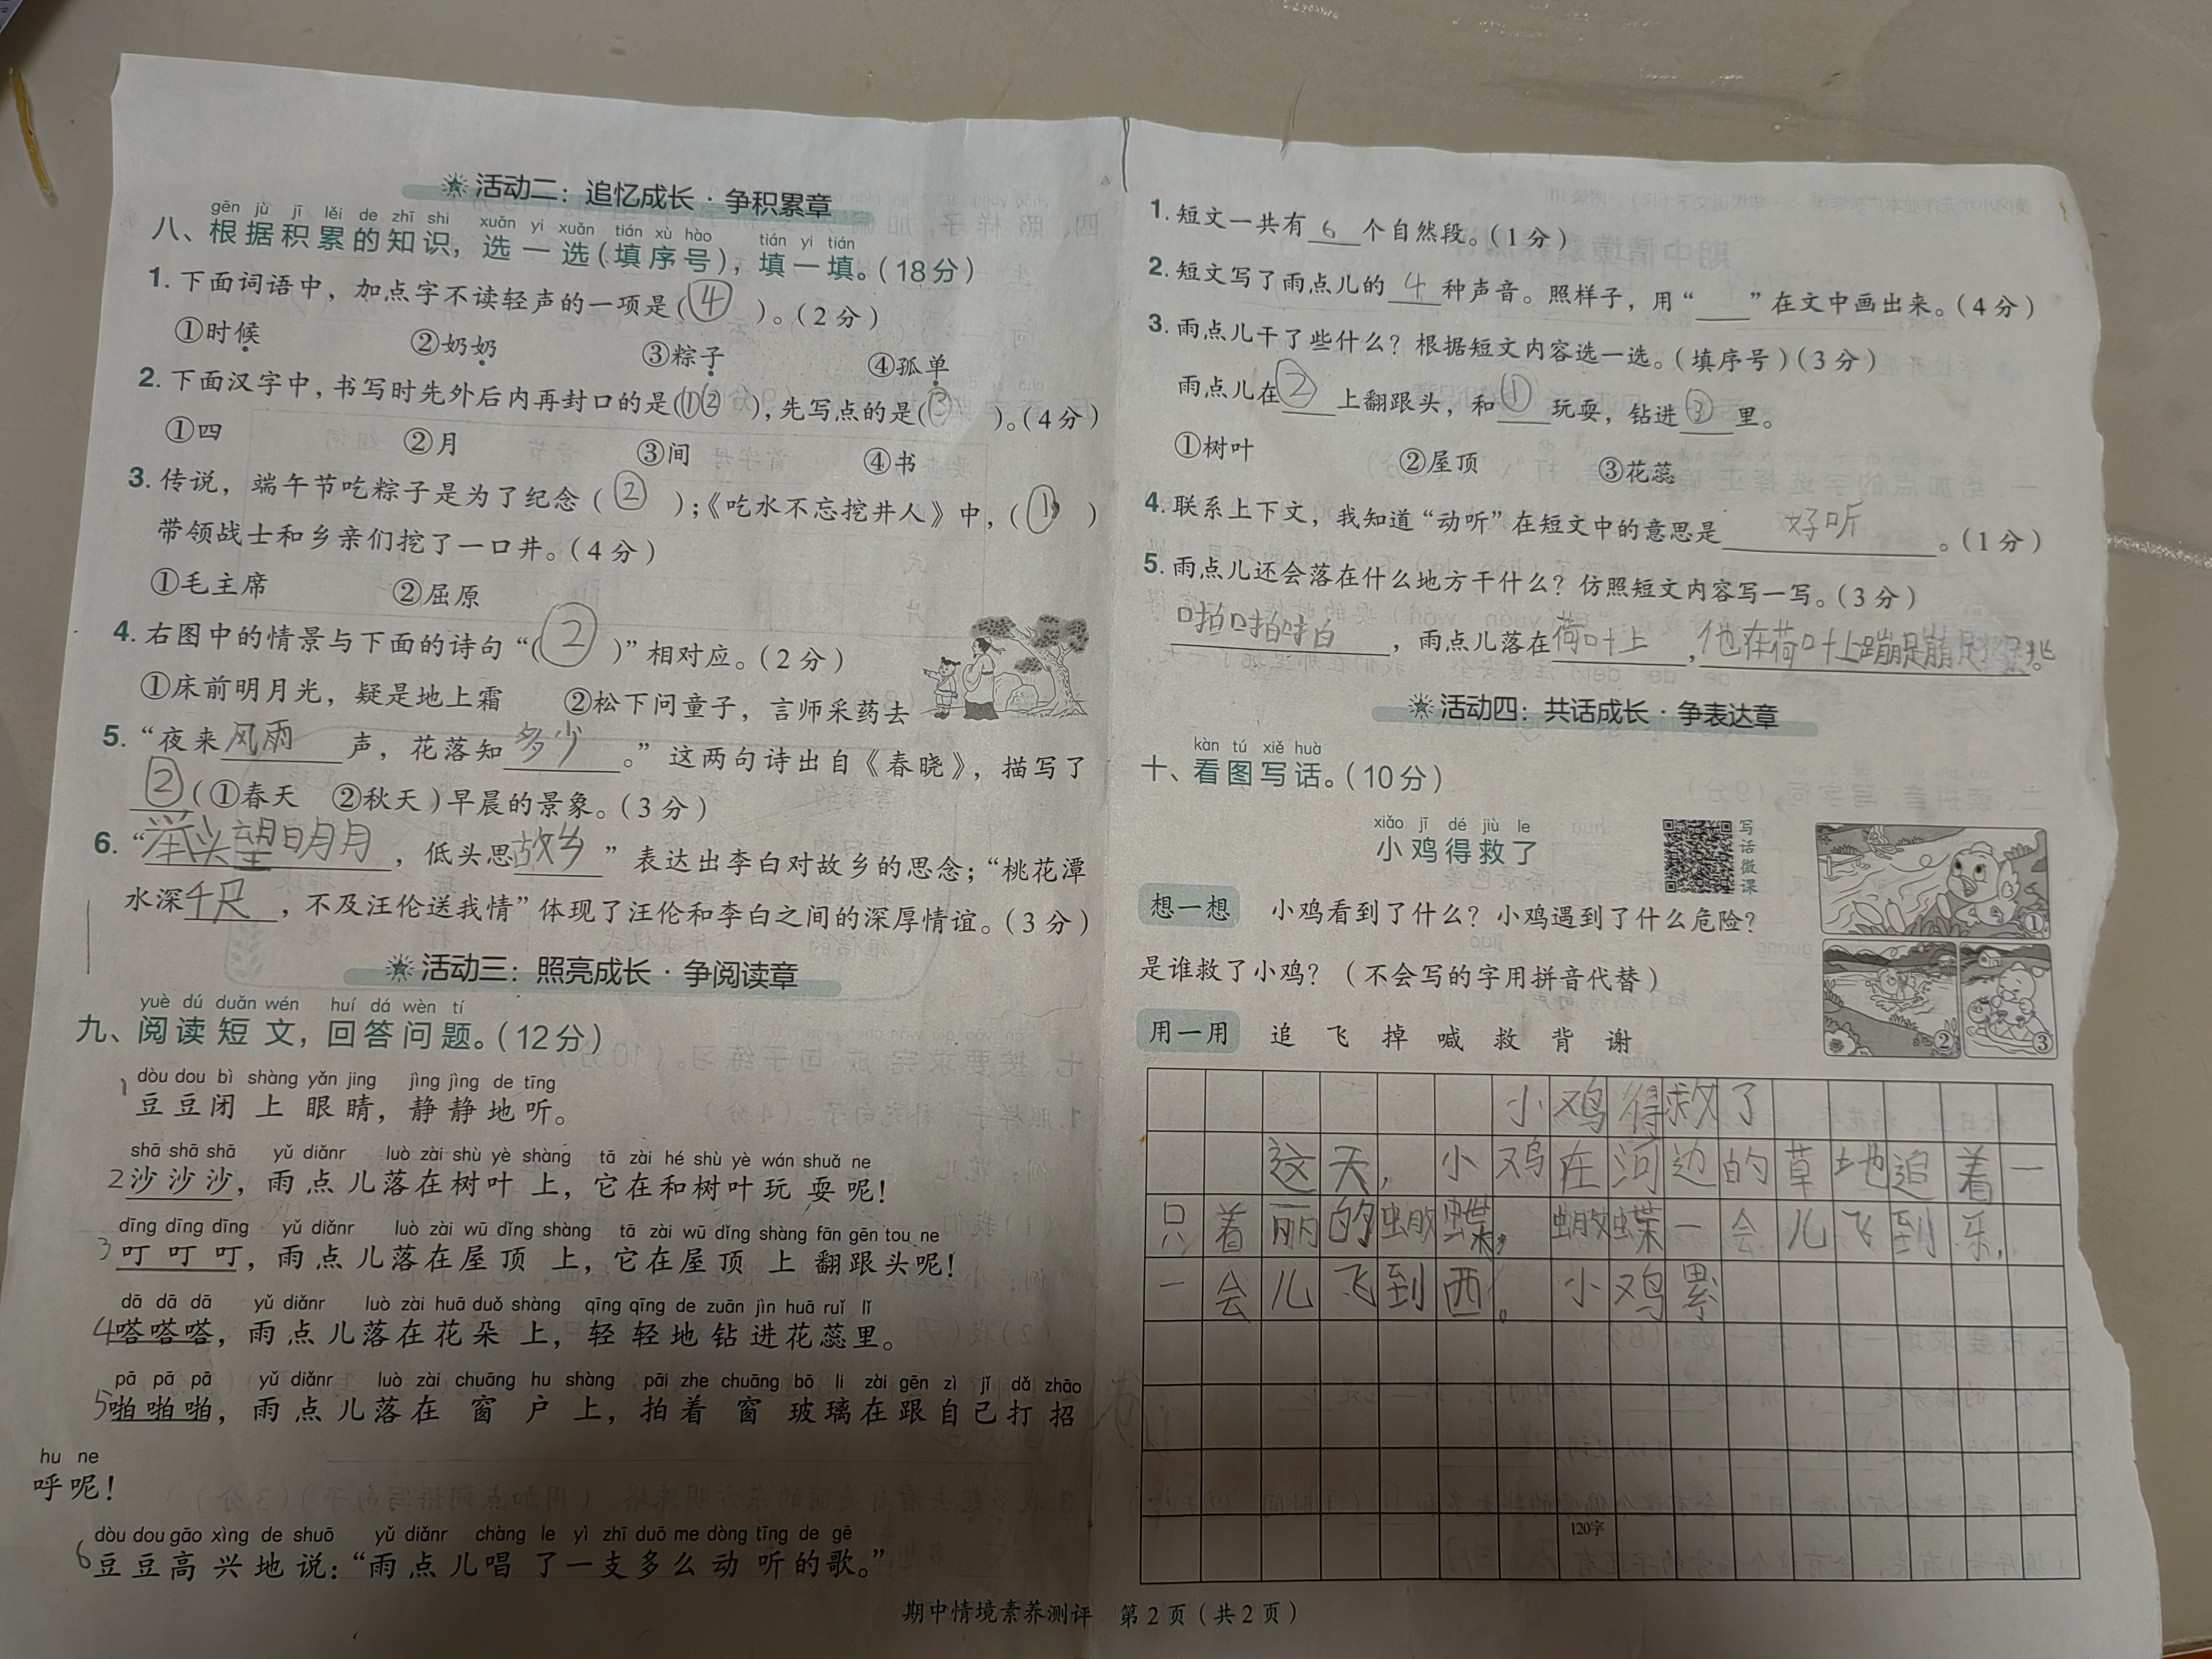 活动二：追忆成长·争积累章
gēn jù jī lěi de zhī shi xuǎn yi xuǎn tián xù hào tián yi tián
八、根据积累的知识，选一选（填序号），填一填。（18分）
1. 下面词语中，加点字不读轻声的一项是（④）。（2分）
①时候 ②奶奶 ③粽子 ④孤单
2. 下面汉字中，书写时先外后内再封口的是（①②），先写点的是（③）。（4分）
①四 ②月 ③间 ④书
3. 传说，端午节吃粽子是为了纪念（②）；《吃水不忘挖井人》中，（①）
带领战士和乡亲们挖了一口井。（4分）
①毛主席 ②屈原
4. 右图中的情景与下面的诗句“（②）”相对应。（2分）
①床前明月光，疑是地上霜 ②松下问童子，言师采药去
5. “夜来风雨声，花落知多少。”这两句诗出自《春晓》，描写了
②（①春天 ②秋天）早晨的景象。（3分）
6. “举头望明月，低头思故乡”表达出李白对故乡的思念；“桃花潭
水深千尺，不及汪伦送我情”体现了汪伦和李白之间的深厚情谊。（3分）
活动三：照亮成长·争阅读章
yuè dú duǎn wén huí dá wèn tí
九、阅读短文，回答问题。（12分）
dòu dou bì shàng yǎn jing jìng jìng de tīng
1 豆豆闭上眼睛，静静地听。
shā shā shā yǔ diǎnr luò zài shù yè shàng tā zài hé shù yè wán shuǎ ne
2 沙沙沙，雨点儿落在树叶上，它在和树叶玩耍呢！
dīng dīng dīng yǔ diǎnr luò zài wū dǐng shàng tā zài wū dǐng shàng fān gēn tou ne
3 叮叮叮，雨点儿落在屋顶上，它在屋顶上翻跟头呢！
dā dā dā yǔ diǎnr luò zài huā duǒ shàng qīng qīng de zuān jìn huā ruǐ lǐ
4 嗒嗒嗒，雨点儿落在花朵上，轻轻地钻进花蕊里。
pā pā pā yǔ diǎnr luò zài chuāng hu shàng pāi zhe chuāng bō li zài gēn zì jǐ dǎ zhāo
5 啪啪啪，雨点儿落在窗户上，拍着窗玻璃在跟自己打招
hu ne
呼呢！
dòu dou gāo xìng de shuō yǔ diǎnr chàng le yì zhī duō me dòng tīng de gē
6 豆豆高兴地说：“雨点儿唱了一支多么动听的歌。”
1. 短文一共有6个自然段。（1分）
2. 短文写了雨点儿的4种声音。照样子，用“___”在文中画出来。（4分）
3. 雨点儿干了些什么？根据短文内容选一选。（填序号）（3分）
雨点儿在②上翻跟头，和①玩耍，钻进③里。
①树叶 ②屋顶 ③花蕊
4. 联系上下文，我知道“动听”在短文中的意思是好听。（1分）
5. 雨点儿还会落在什么地方干什么？仿照短文内容写一写。（3分）
啪啪啪，雨点儿落在荷叶上，他在荷叶上蹦蹦跳跳。
活动四：共话成长·争表达章
kàn tú xiě huà
十、看图写话。（10分）
xiǎo jī dé jiù le
小鸡得救了
写话微课
想一想 小鸡看到了什么？小鸡遇到了什么危险？
是谁救了小鸡？（不会写的字用拼音代替）
用一用 追 飞 掉 喊 救 背 谢
① ② ③
小鸡得救了
这天，小鸡在河边的草地追着一
只着丽的蝴蝶，蝴蝶一会儿飞到乐，
一会儿飞到西。小鸡累
120字
期中情境素养测评 第2页（共2页）